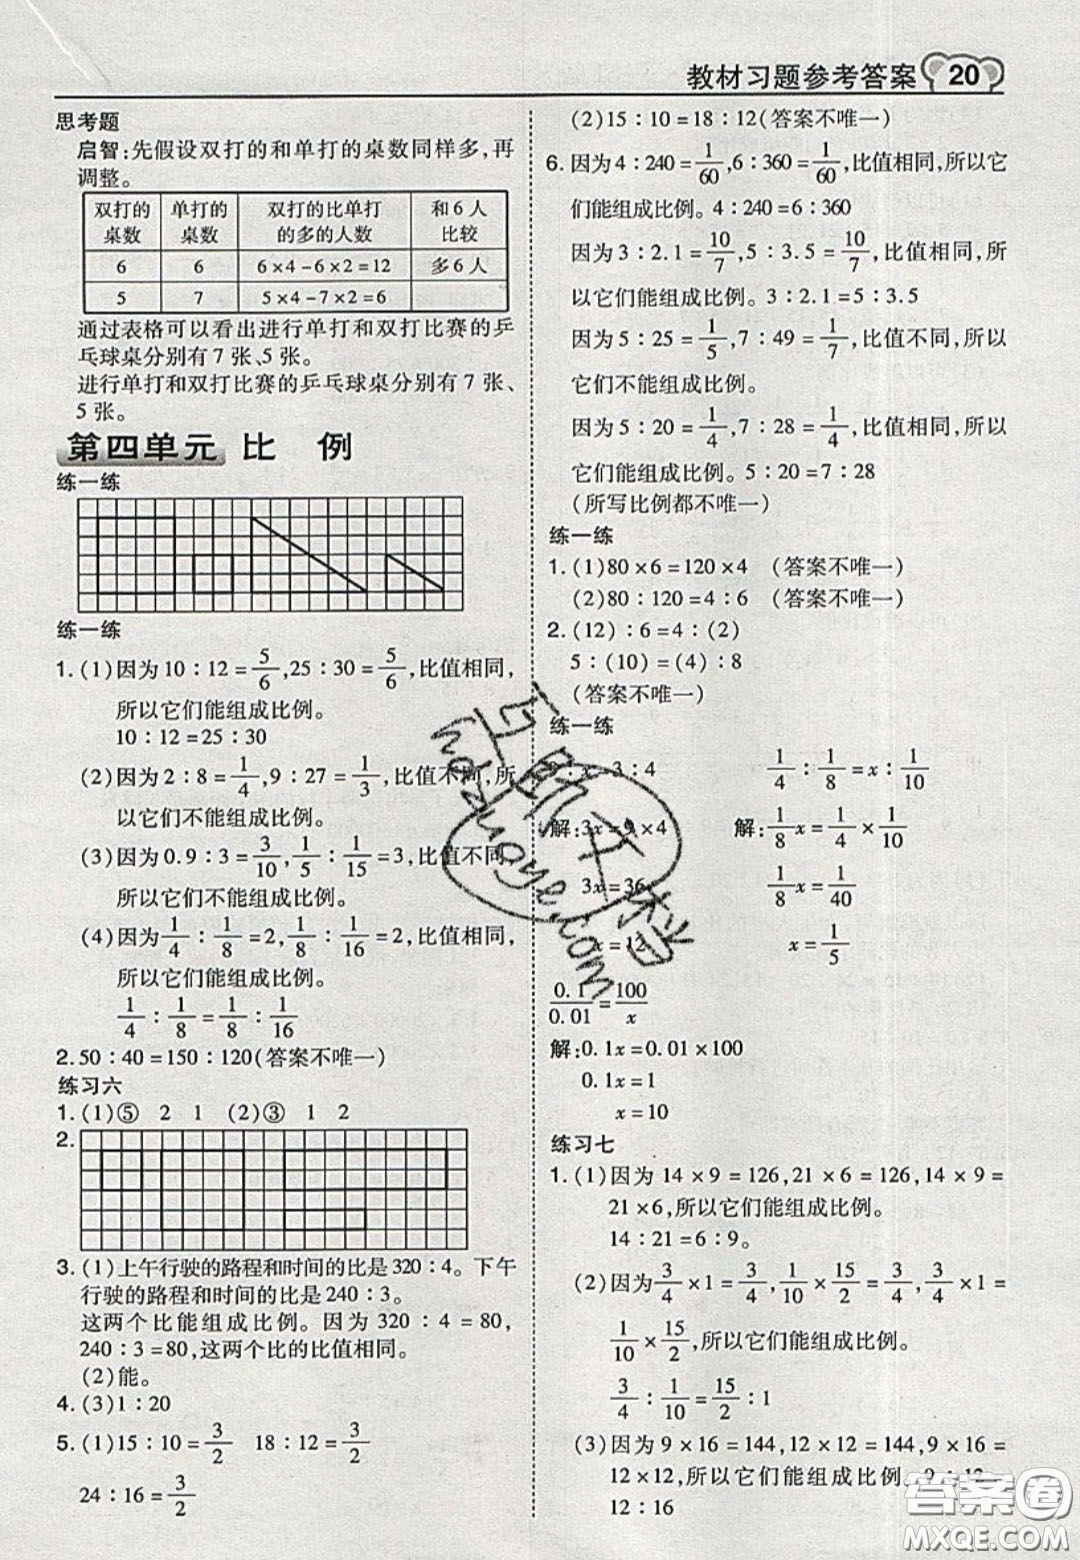 教材习题参考答案 20
思考题
启智:先假设双打的和单打的桌数同样多,再
调整。
双打的桌数 单打的桌数 双打的比单打的多的人数 和6人比较
6 6 6×4-6×2=12 多6人
5 7 5×4-7×2=6
通过表格可以看出进行单打和双打比赛的乒
乓球桌分别有7张、5张。
进行单打和双打比赛的乒乓球桌分别有7张、
5张。
第四单元 比 例
练一练
练一练
1.(1)因为10∶12=5/6,25∶30=5/6,比值相同,
所以它们能组成比例。
10∶12=25∶30
(2)因为2∶8=1/4,9∶27=1/3,比值不同,所
以它们不能组成比例。
(3)因为0.9∶3=3/10,1/5∶1/15=3,比值不同,
所以它们不能组成比例。
(4)因为1/4∶1/8=2,1/8∶1/16=2,比值相同,
所以它们能组成比例。
1/4∶1/8=1/8∶1/16
2.50∶40=150∶120(答案不唯一)
练习六
1.(1)⑤ 2 1 (2)③ 1 2
2.
3.(1)上午行驶的路程和时间的比是320∶4。下午
行驶的路程和时间的比是240∶3。
这两个比能组成比例。因为320∶4=80,
240∶3=80,这两个比的比值相同。
(2)能。
4.(3)1∶20
5.(1)15∶10=3/2 18∶12=3/2
24∶16=3/2
(2)15∶10=18∶12(答案不唯一)
6.因为4∶240=1/60,6∶360=1/60,比值相同,所以它
们能组成比例。4∶240=6∶360
因为3∶2.1=10/7,5∶3.5=10/7,比值相同,所
以它们能组成比例。3∶2.1=5∶3.5
因为5∶25=1/5,7∶49=1/7,比值不同,所以
它们不能组成比例。
因为5∶20=1/4,7∶28=1/4,比值相同,所以
它们能组成比例。5∶20=7∶28
(所写比例都不唯一)
练一练
1.(1)80×6=120×4 (答案不唯一)
(2)80∶120=4∶6 (答案不唯一)
2.(12)∶6=4∶(2)
5∶(10)=(4)∶8
(答案不唯一)
练一练
3∶4 1/4∶1/8=x∶1/10
解:3x=9×4 解:1/8x=1/4×1/10
3x=36 1/8x=1/40
x=12 x=1/5
0.1/0.01=100/x
解:0.1x=0.01×100
0.1x=1
x=10
练习七
1.(1)因为14×9=126,21×6=126,14×9=
21×6,所以它们能组成比例。
14∶21=6∶9。
(2)因为3/4×1=3/4,1/10×15/2=3/4,3/4×1=
1/10×15/2,所以它们能组成比例。
3/4∶1/10=15/2∶1
(3)因为9×16=144,12×12=144,9×16=
12×12,所以它们能组成比例。9∶12=
12∶16
互助文档
hdzuoye.com
答案圈
MXQE.COM